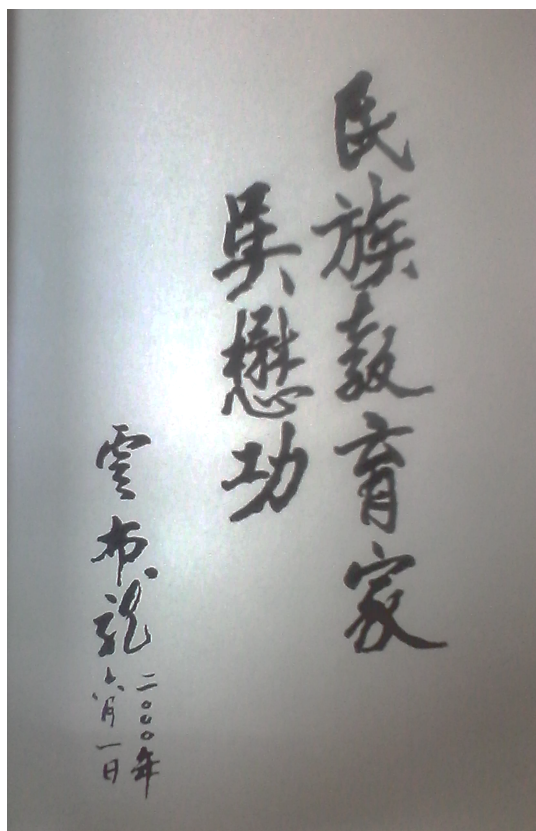 民族教育家
吴懋功
雲布龍
二〇〇〇年
六月一日